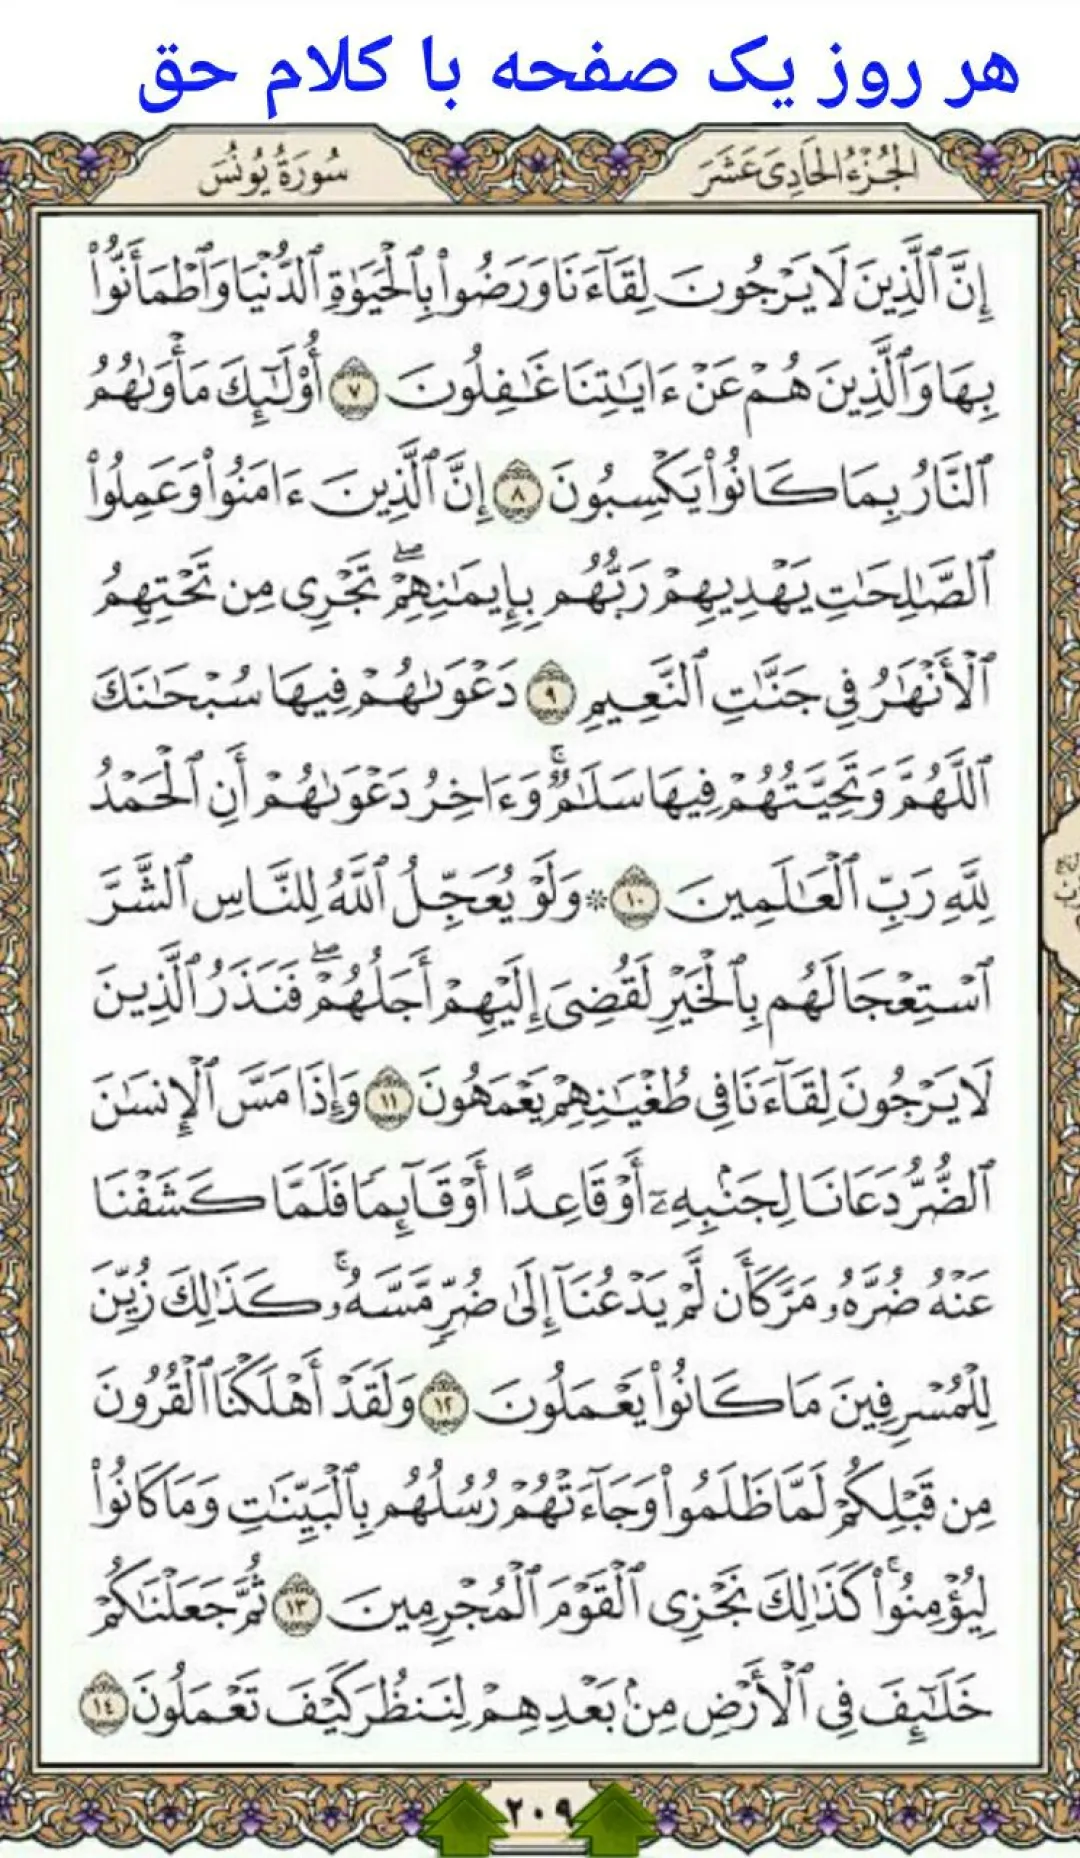 هر روز یک صفحه با کلام حق
الجُزْءُ الحَادِی عَشَرَ
سُورَةُ يُونُسَ
إِنَّ ٱلَّذِينَ لَا يَرْجُونَ لِقَآءَنَا وَرَضُوا۟ بِٱلْحَيَوٰةِ ٱلدُّنْيَا وَٱطْمَأَنُّوا۟
بِهَا وَٱلَّذِينَ هُمْ عَنْ ءَايَـٰتِنَا غَـٰفِلُونَ ٧ أُو۟لَـٰٓئِكَ مَأْوَىٰهُمُ
ٱلنَّارُ بِمَا كَانُوا۟ يَكْسِبُونَ ٨ إِنَّ ٱلَّذِينَ ءَامَنُوا۟ وَعَمِلُوا۟
ٱلصَّـٰلِحَـٰتِ يَهْدِيهِمْ رَبُّهُم بِإِيمَـٰنِهِمْ ۖ تَجْرِى مِن تَحْتِهِمُ
ٱلْأَنْهَـٰرُ فِى جَنَّـٰتِ ٱلنَّعِيمِ ٩ دَعْوَىٰهُمْ فِيهَا سُبْحَـٰنَكَ
ٱللَّهُمَّ وَتَحِيَّتُهُمْ فِيهَا سَلَـٰمٌ ۚ وَءَاخِرُ دَعْوَىٰهُمْ أَنِ ٱلْحَمْدُ
لِلَّهِ رَبِّ ٱلْعَـٰلَمِينَ ١٠ ۞ وَلَوْ يُعَجِّلُ ٱللَّهُ لِلنَّاسِ ٱلشَّرَّ
ٱسْتِعْجَالَهُم بِٱلْخَيْرِ لَقُضِىَ إِلَيْهِمْ أَجَلُهُمْ ۖ فَنَذَرُ ٱلَّذِينَ
لَا يَرْجُونَ لِقَآءَنَا فِى طُغْيَـٰنِهِمْ يَعْمَهُونَ ١١ وَإِذَا مَسَّ ٱلْإِنسَـٰنَ
ٱلضُّرُّ دَعَانَا لِجَنۢبِهِۦٓ أَوْ قَاعِدًا أَوْ قَآئِمًا فَلَمَّا كَشَفْنَا
عَنْهُ ضُرَّهُۥ مَرَّ كَأَن لَّمْ يَدْعُنَآ إِلَىٰ ضُرٍّ مَّسَّهُۥ ۚ كَذَٰلِكَ زُيِّنَ
لِلْمُسْرِفِينَ مَا كَانُوا۟ يَعْمَلُونَ ١٢ وَلَقَدْ أَهْلَكْنَا ٱلْقُرُونَ
مِن قَبْلِكُمْ لَمَّا ظَلَمُوا۟ وَجَآءَتْهُمْ رُسُلُهُم بِٱلْبَيِّنَـٰتِ وَمَا كَانُوا۟
لِيُؤْمِنُوا۟ ۚ كَذَٰلِكَ نَجْزِى ٱلْقَوْمَ ٱلْمُجْرِمِينَ ١٣ ثُمَّ جَعَلْنَـٰكُمْ
خَلَـٰٓئِفَ فِى ٱلْأَرْضِ مِنۢ بَعْدِهِمْ لِنَنظُرَ كَيْفَ تَعْمَلُونَ ١٤
٢٠٩